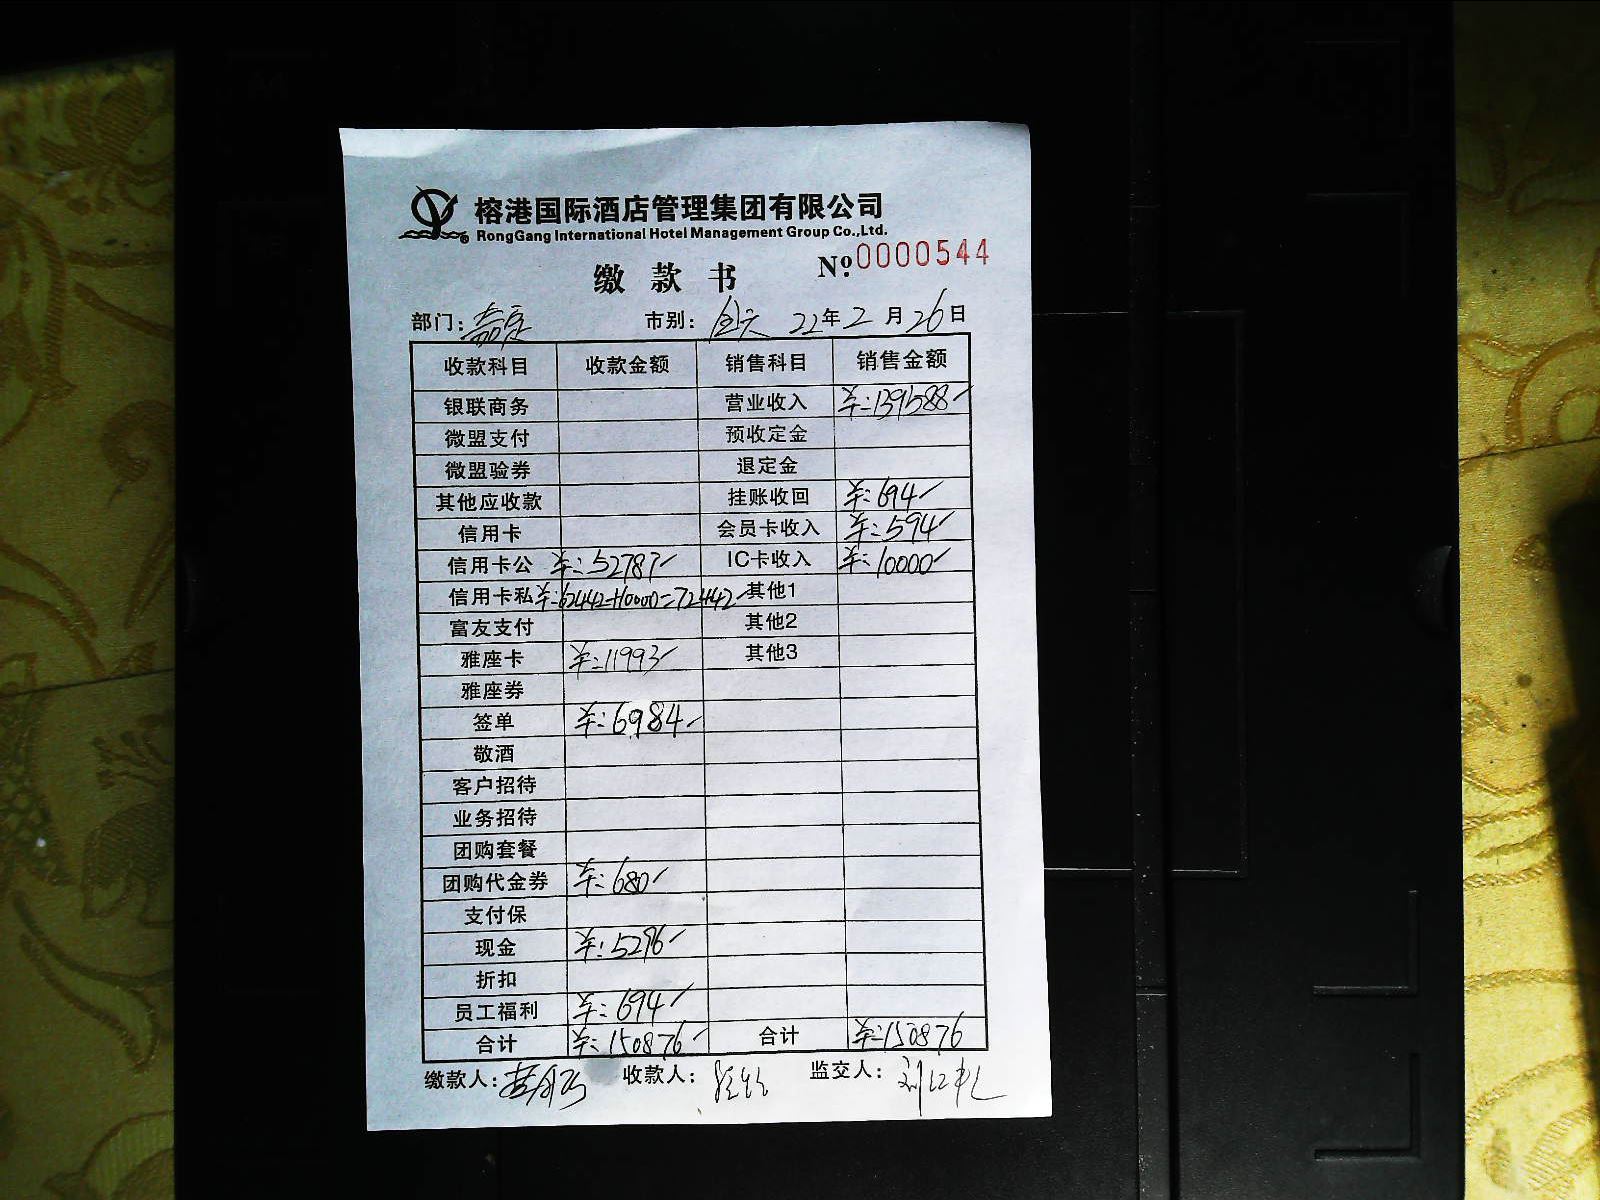 榕港国际酒店管理集团有限公司
RongGang International Hotel Management Group Co.,Ltd.
缴款书 №0000544
部门:嘉定 市别:全天 22年2月26日
收款科目 收款金额 销售科目 销售金额
银联商务 营业收入 ¥:139588
微盟支付 预收定金
微盟验券 退定金
其他应收款 挂账收回 ¥:694
信用卡 会员卡收入 ¥:594
信用卡公 ¥:52787 IC卡收入 ¥:10000
信用卡私 ¥:62442+10000=72442 其他1
富友支付 其他2
雅座卡 ¥:11993 其他3
雅座券
签单 ¥:6984
敬酒
客户招待
业务招待
团购套餐
团购代金券 ¥:680
支付保
现金 ¥:5296
折扣
员工福利 ¥:694
合计 ¥:150876 合计 ¥:150876
缴款人: 收款人: 监交人: